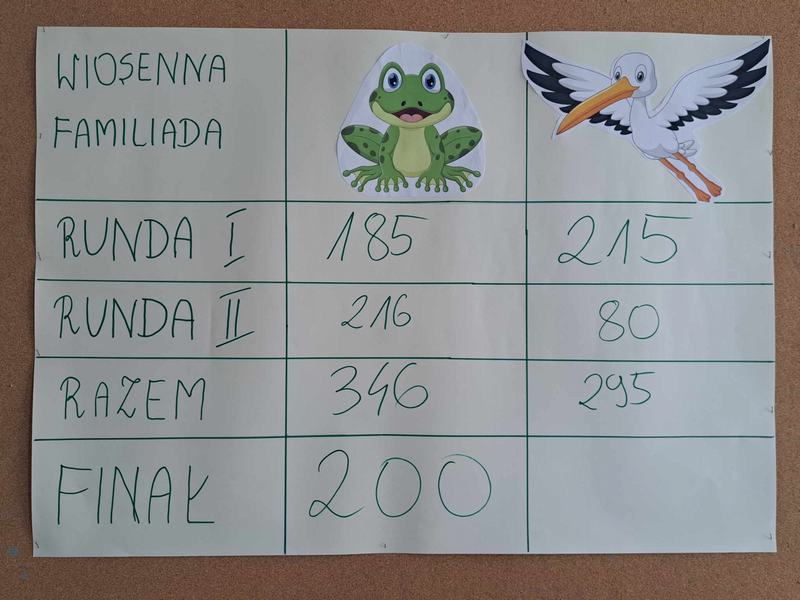 WIOSENNA
FAMILIADA
RUNDA I 185 215
RUNDA II 216 80
RAZEM 346 295
FINAŁ 200